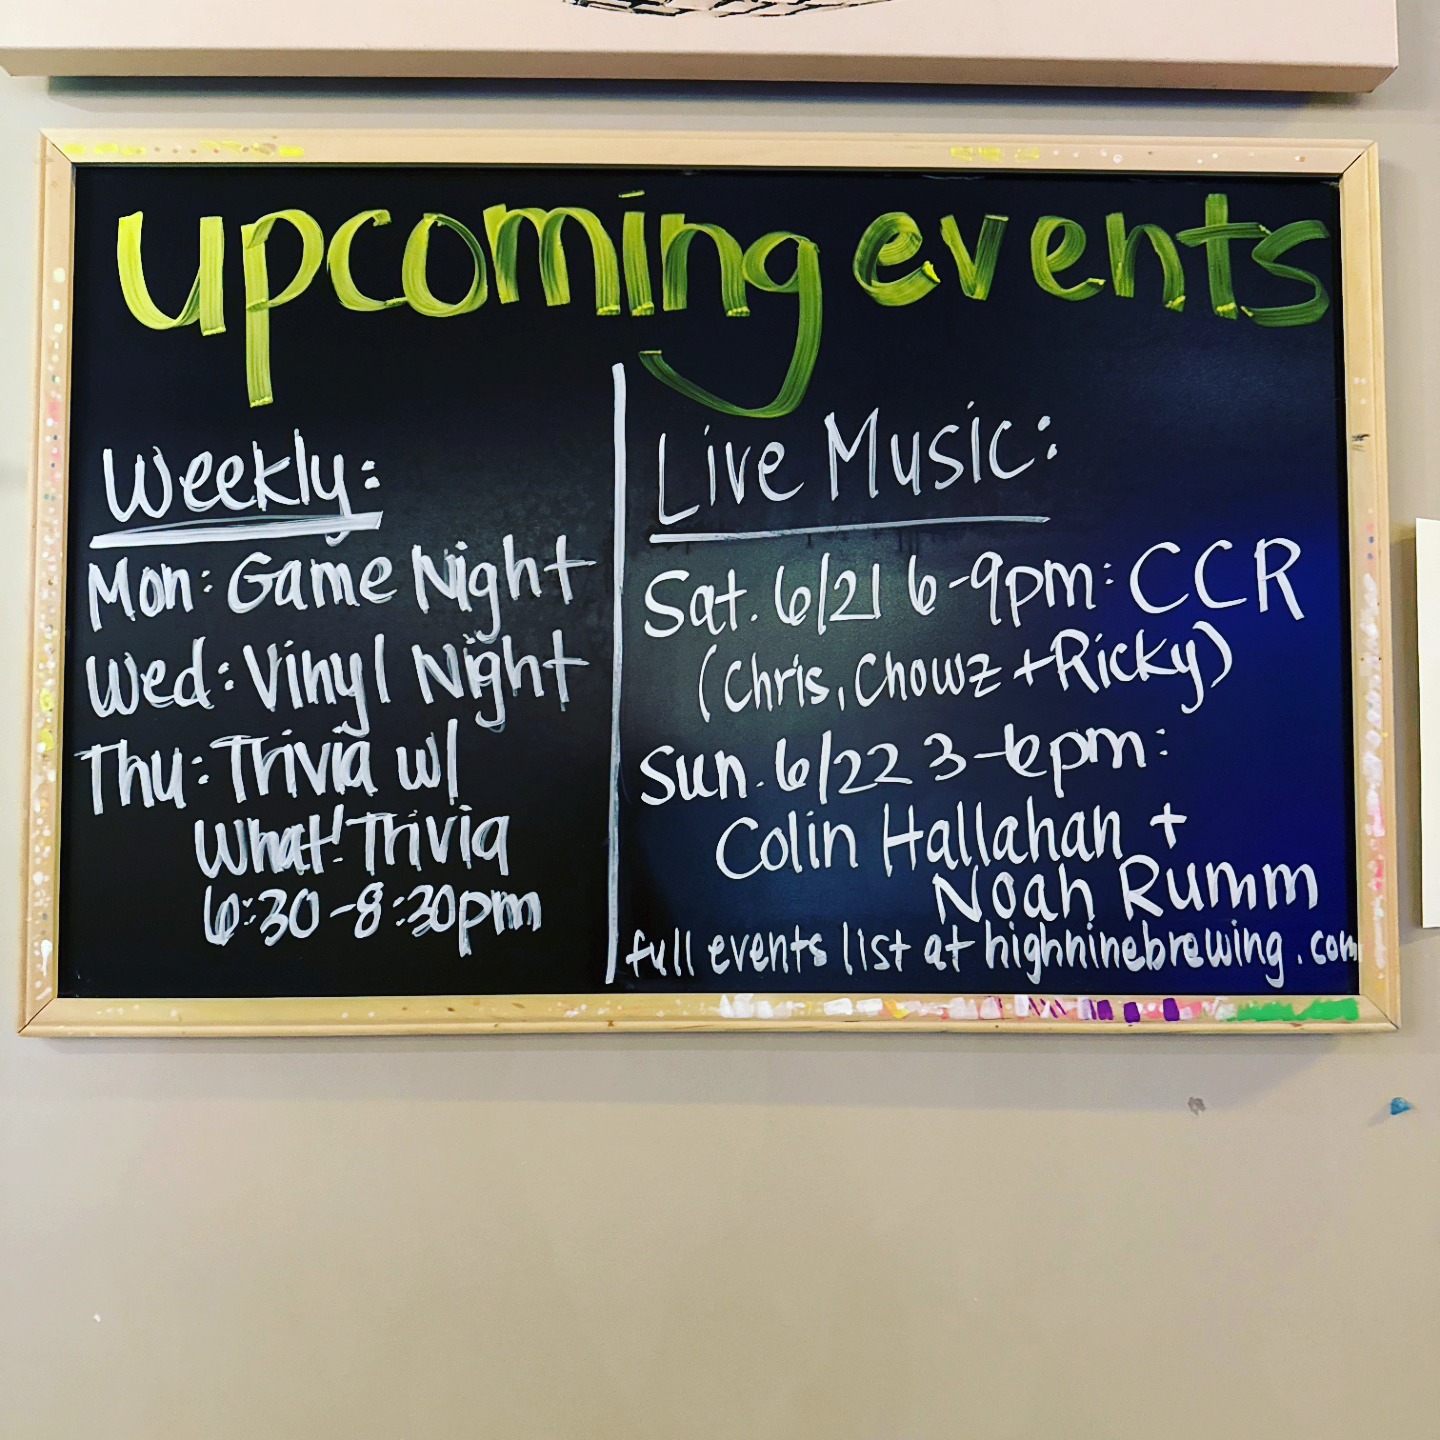 upcoming events
Weekly:
Mon: Game Night
Wed: Vinyl Night
Thu: Trivia w/
What! Trivia
6:30-8:30pm
Live Music:
Sat. 6/21 6-9pm: CCR
(Chris, Chowz + Ricky)
Sun. 6/22 3-6pm:
Colin Hallahan +
Noah Rumm
full events list at highninebrewing.com